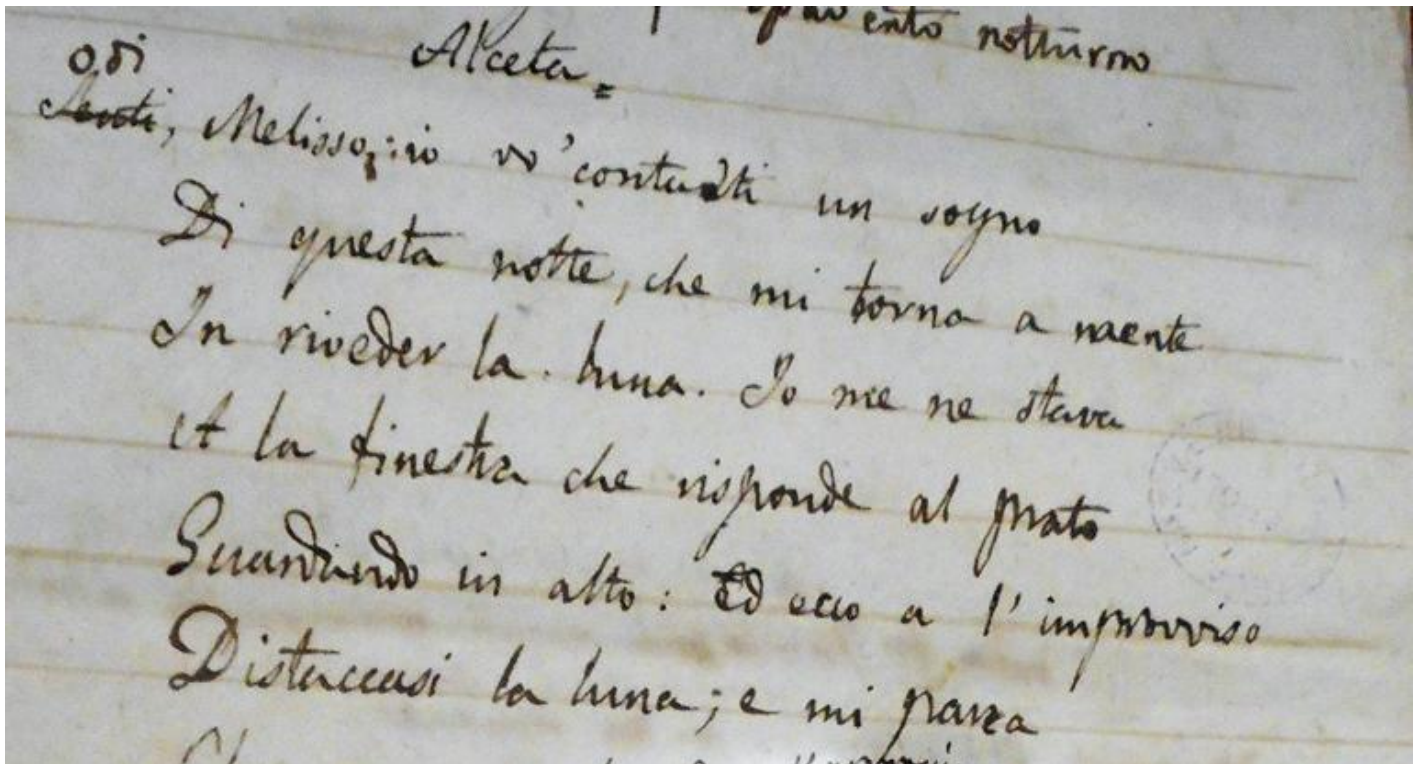 spavento notturno
Alceta =
Odi
Senti, Melisso: io vo' contarti un sogno
Di questa notte, che mi torna a mente
In riveder la luna. Io me ne stava
A la finestra che risponde al prato
Guardando in alto: Ed ecco a l'improvviso
Distaccasi la luna; e mi parea